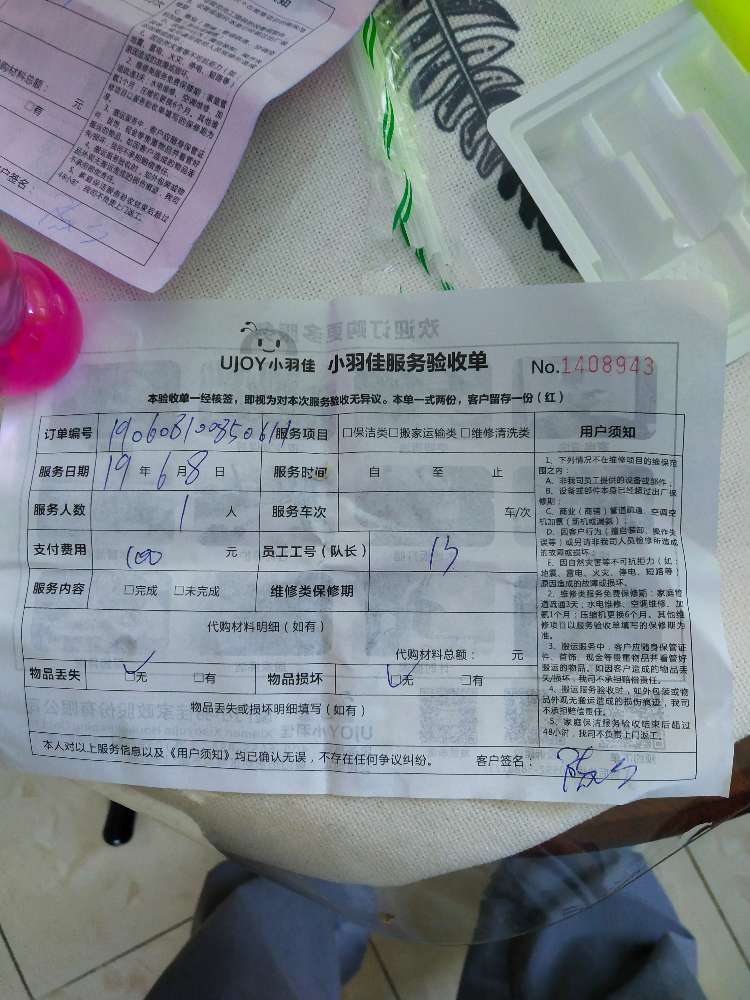 代购材料总额： 元
□有
客户签名：
48小时，我司不负责上门返工。
欢迎订购更多服务
UJOY小羽佳 小羽佳服务验收单 No.1408943
本验收单一经核签，即视为对本次服务验收无异议。本单一式两份，客户留存一份（红）
订单编号 服务项目 □保洁类□搬家运输类□维修清洗类 用户须知
服务日期 19年6月8日 服务时间 自 至 止
服务人数 1人 服务车次 车/次
支付费用 100元 员工工号（队长）
服务内容 □完成 □未完成 维修类保修期
代购材料明细（如有）
代购材料总额： 元
物品丢失 □无 □有 物品损坏 □无 □有
物品丢失或损坏明细填写（如有）
本人对以上服务信息以及《用户须知》均已确认无误，不存在任何争议纠纷。 客户签名：
1、下列情况不在维修项目的维保范
围之内：
A、非我司员工提供的设备或部件；
B、设备或部件本身已经超过出厂保
修期；
C、商业（商铺）管道疏通、空调空
机加氟（新机或漏氟）；
D、因客户行为（擅自装卸、操作失
误等）或另请非我司人员检修所造成
的故障或损坏；
E、因自然灾害等不可抗拒力（如：
地震、雷电、火灾、停电、短路等）
原因造成的故障或损坏。
2、维修类服务免费保修期：家庭管
道疏通3天；水电维修、空调维修、加
氟1个月；压缩机更换6个月。其他维
修项目以服务验收单填写的保修期为
准。
3、搬运服务中，客户应随身保管证
件、首饰、现金等贵重物品并看管好
搬运的物品。如因客户造成的物品丢
失/损坏，我司不承担赔偿责任。
4、搬运服务验收时，如外包装或物
品外观无搬运造成的损伤痕迹，我司
不承担赔偿责任。
5、家庭保洁服务验收结束后超过
48小时，我司不负责上门返工。